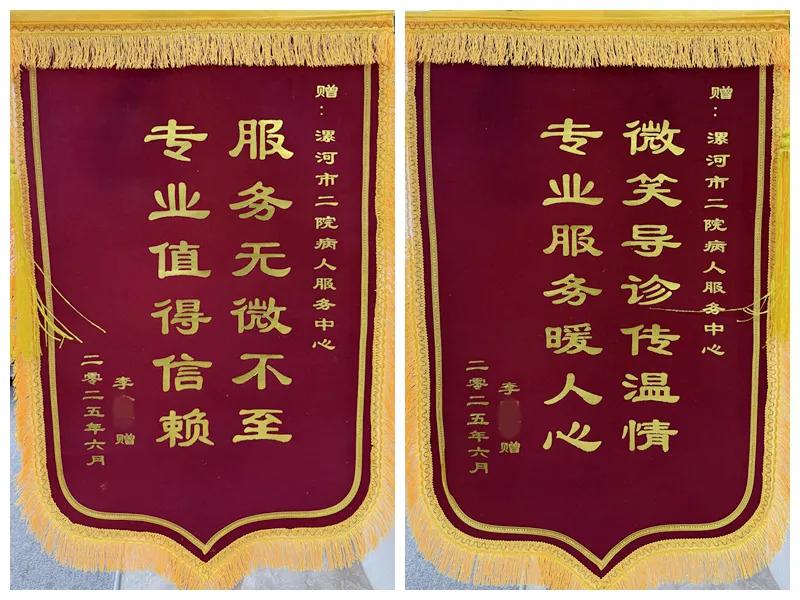 赠：漯河市二院病人服务中心
服务无微不至
专业值得信赖
李 赠
二零二五年六月
赠：漯河市二院病人服务中心
微笑导诊传温情
专业服务暖人心
李 赠
二零二五年六月